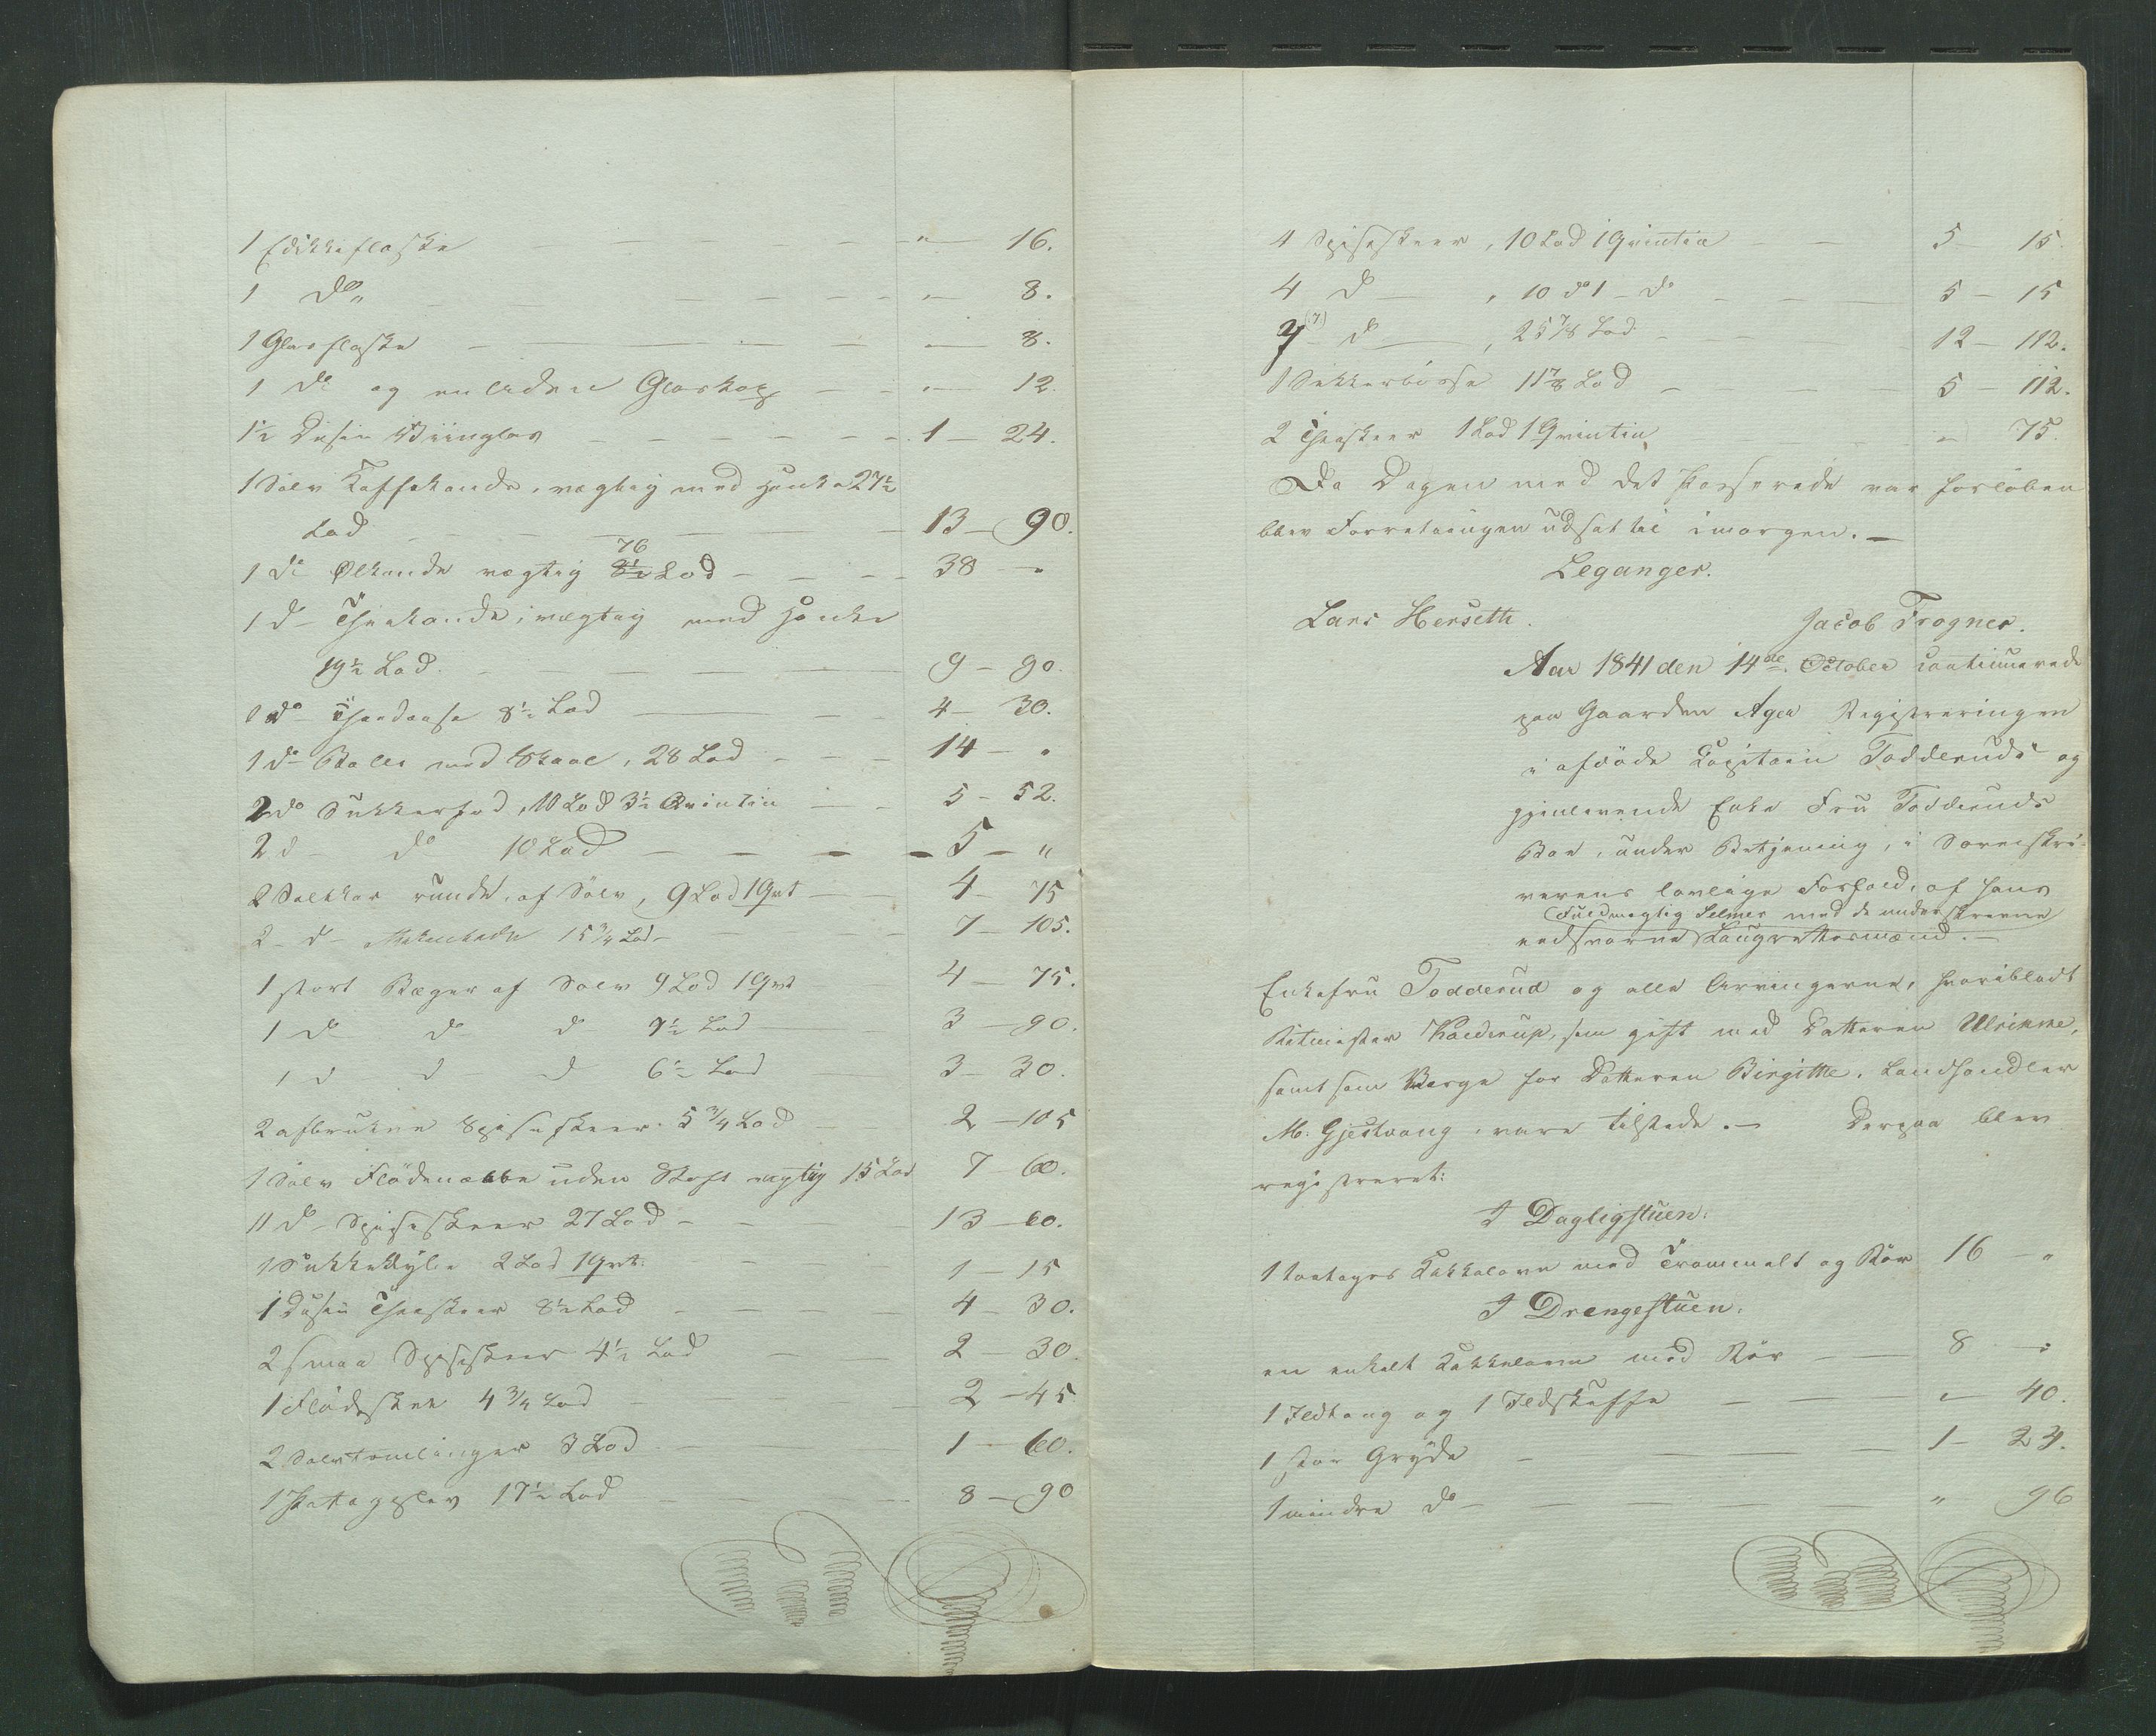 1 Edikkeflaske — „ — 16.
1 Do„ — „ — 8.
1 Glasflaske — „ — 8.
1 Do og en liden Glaskop — „ — 12.
1½ Dusin Viinglas — 1 — 24.
1 Sølv Kaffekande, vægtig med Hanke 27½
Lod — 13 — 90.
76
1 Do Ølkande vægtig 8½ Lod — 38 — „
1 Do Theekande, vægtig med Hanke
19½ Lod — 9 — 90.
1 do Theedaase 8½ Lod — 4 — 30.
1 do Balle med Skaal, 28 Lod — 14 — „
2 do Sukkerfad, 10 Lod 3½ Qvintin — 5 — 52.
2 d — do 10 Lod — 5 — „
2 Saltkar runde, af Sølv, 9 Lod 1 Qvt — 4 — 75
2 — d — 15¾ Lod — 7 — 105.
1 stort Bæger af Sølv 9 Lod 1 Qvt — 4 — 75.
1 Do do d 7½ Lod — 3 — 90.
1 d d d 6½ Lod — 3 — 30.
2 afbrukne Spiseskeer 5¾ Lod — 2 — 105
1 Sølv Flødenæbbe uden Skaft vægtig 15 Lod 7 — 60.
11 do Spiseskeer 27 Lod — 13 — 60.
1 2 Lod 1 Qvt. — 1 — 15
1 Dusin Theskeer 8½ Lod — 4 — 30.
2 smaa Spiseskeer 4½ Lod — 2 — 30.
1 Flødeskee 4¾ Lod — 2 — 45
2 3 Lod — 1 — 60.
1 Potageslev 17½ Lod — 8 — 90
4 Spiseskeer, 10 Lod 1 Qvintin — 5 — 15.
4 D — , 10 do 1 — do — 5 — 15
7 (7) — d — , 25⅞ Lod — 12 — 112.
1 Sukkerbøsse 11⅞ Lod — 5 — 112.
2 Theskeer 1 Lod 1 Qvintin — „ 75.
Da Dagen med det Passerede var forløben
blev Forretningen udsat til imorgen. —
Leganger.
Lars Herseth. Jacob Frogner.
Aar 1841 den 14de October continuerede
paa Gaarden Ager Registreringen
i afdøde Capitain Todderuds og
gjenlevende Enke Fru Todderuds
Boe, under Betjening, i Sorenskri-
verens lovlige Forfald, af hans
Fuldmægtig Selmer med de underskrevne
eedsvorne Laugrettesmænd. —
Enkefru Todderud og alle Arvingerne, hvoriblandt
Ritmester Kolderup, som gift med Datteren Ulrikke,
samt som Værge for Datteren Birgitte, Landhandler
M. Gjestvang, vare tilstede. — Derpaa blev
registreret:
I Dagligstuen:
1 toetages Kakkelovn med Trommelt og Rør 16 — „
I Drengestuen.
en enkelt Kakkelovn med Rør — 8 — „
1 Ildtang og 1 Ildskuffe — „ — 40.
1 stor Gryde — 1 — 24.
1 mindre do — „ 96